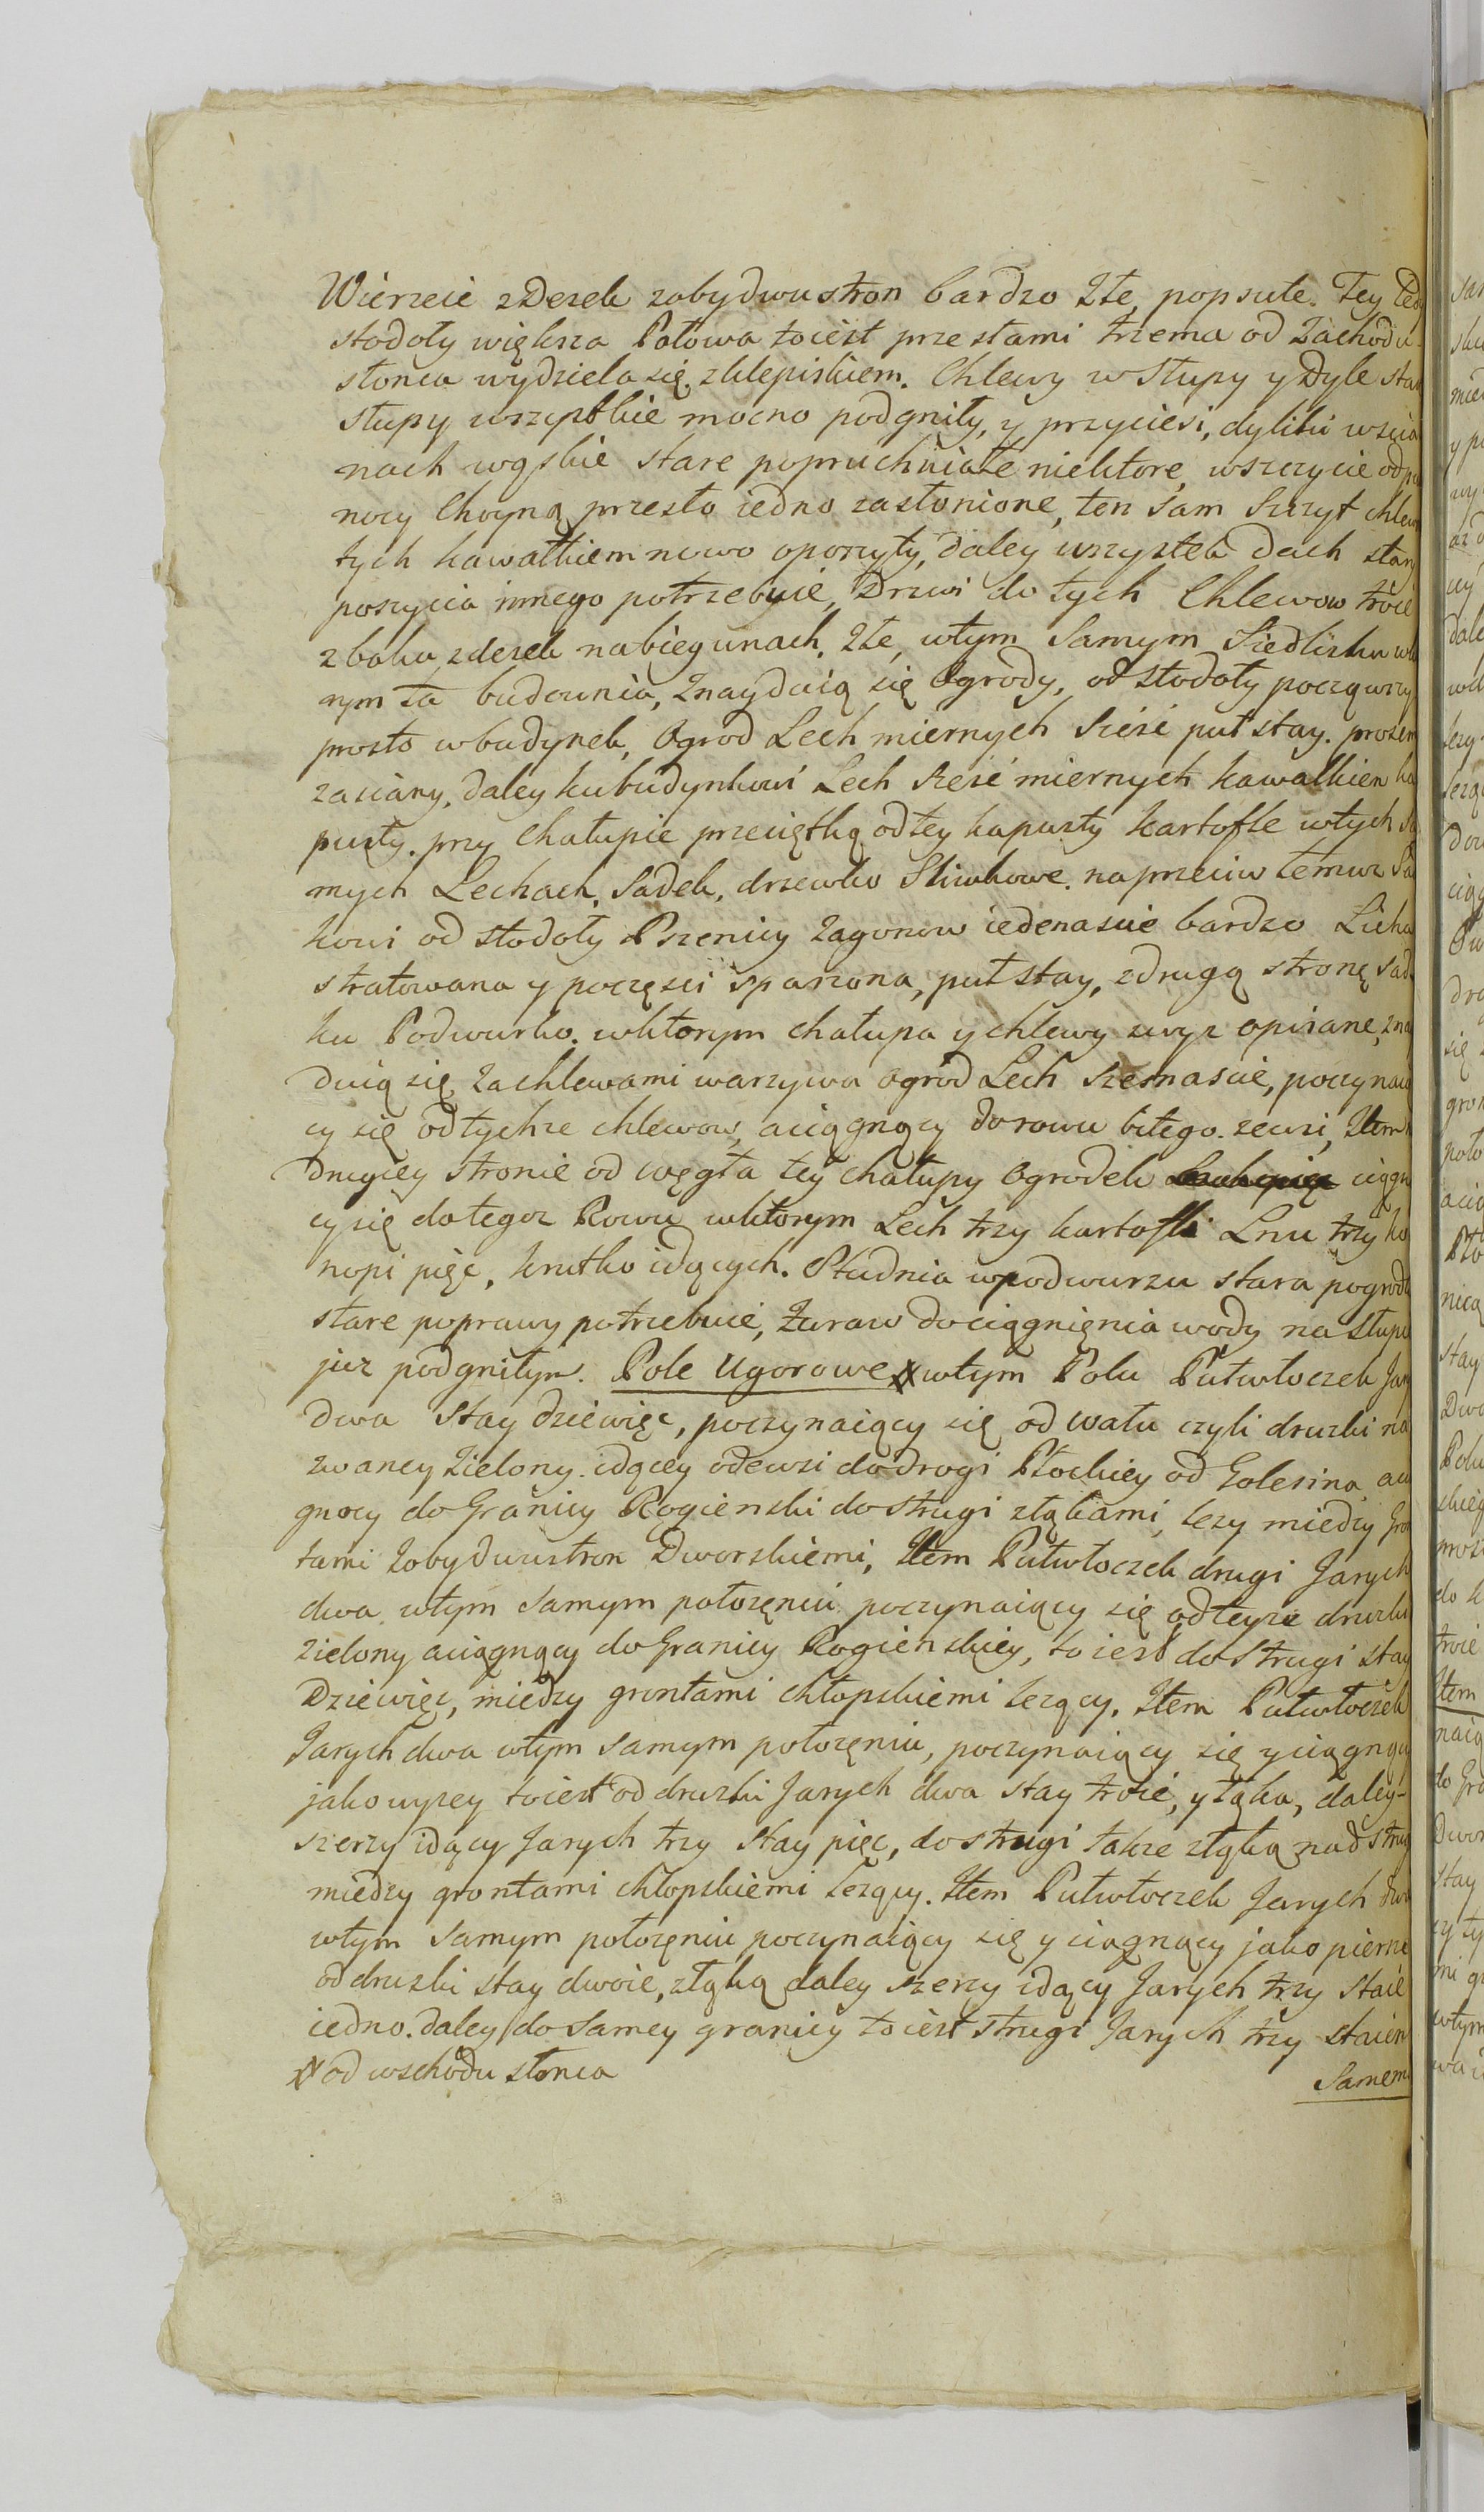 Wierzeie z Desek zobydwu stron bardzo złe, popsute. Tey
stodoły większa Połowa toiest przesłami trzema od Zachodu
słonca wydziela się z klepiskiem. Chlewy w Słupy y Dyle
słupy wszystkie mocno podgniły, y przyciesi, dyliki wscia
nach wąskie stare popruchniałe niektore, wszczycie od
nocy Choyną przesło iedno zasłonione, ten sam Szczyt
tych kawałkiem nowo oposzyty, daley wszystek dach
poszycia innego potrzebuie, Drzwi do tych Chlewow troie
z boku z desek nabiegunach. złe, wtym samym Siedlisku
nym ta budownia, znayduią się Ogrody, od stodoły począwszy
prosto w budynek, Ogrod Lech miernych sześć puł stay.
zasiany, daley ku budynkowi Lech sześć miernych kawałkiem ka
pusty. przy Chałupie przeciętką od tey kapusty kartofle wtych sa
mych Lechach, Sadek, drzewko Sliwkowe. naprzeciw temuz Sad
kowi od stodoły Pszenicy Zagonow iedenascie bardzo Licha
stratowana y poczęsci spaszona, puł stay, z drugą stronę Sad
ku Podwurko. wktorym chałupa y chlewy wyz opisane, znay
duią się, Zachlewami warzywa Ogrod Lech szesnascie, poczynaią
cy się od tychze chlewow, aciągnący do rowu bitego. zewsi, Item
drugiey stronie od węgła tey chałupy Ogrodek ciągn
cy się do tegoz Rowu wktorym Lech trzy kartofli Lnu trzy ko
nopi pięc, krutko idących. Studnia w podwurzu stara pogrod
stare poprawy potrzebuie, Zuraw do ciągnięnia wody na słupie
juz podgniłym. Pole Ugorowe wtym Polu Pułwłoczek
dwa Stay dziewięc, poczynaiący się od wału czyli druzki na
zwaney Zielony. idącey odewsi do drogi Płockiey od Golesina
gnocy do Granicy Rogienski do strugi złąkami, lezy miedzy
tami zobydwustron Dworskiemi, Item Pułwłoczek drugi Jarych
dwa wtym samym połozeniu poczynaiący się od teyze druzki
Zielony aciągnący do Granicy Rogienskiey, to iest do strugi stay
Dziewięc, miedzy grontami chłopskiemi lezący. Item Pułwłoczek
Jarych dwa wtym samym połozęniu, poczynaiący się y ciągnący
jako wyzey toiest od druzki Jarych dwa stay troie, y łąka, daley
szerzy idący Jarych trzy stay pięc, do strugi takze złąką nad
miedzy grontami chłopskiemi lezący. Item Pułwłoczek Jarych
wtym samym połozęniu poczynaiący się y ciągnący jako
od druzki stay dwoie, złąką daley szerzy idący Jarych trzy staie
iedno. daley do samey granicy toiest strugi Jarych trzy
od wschodu słonca